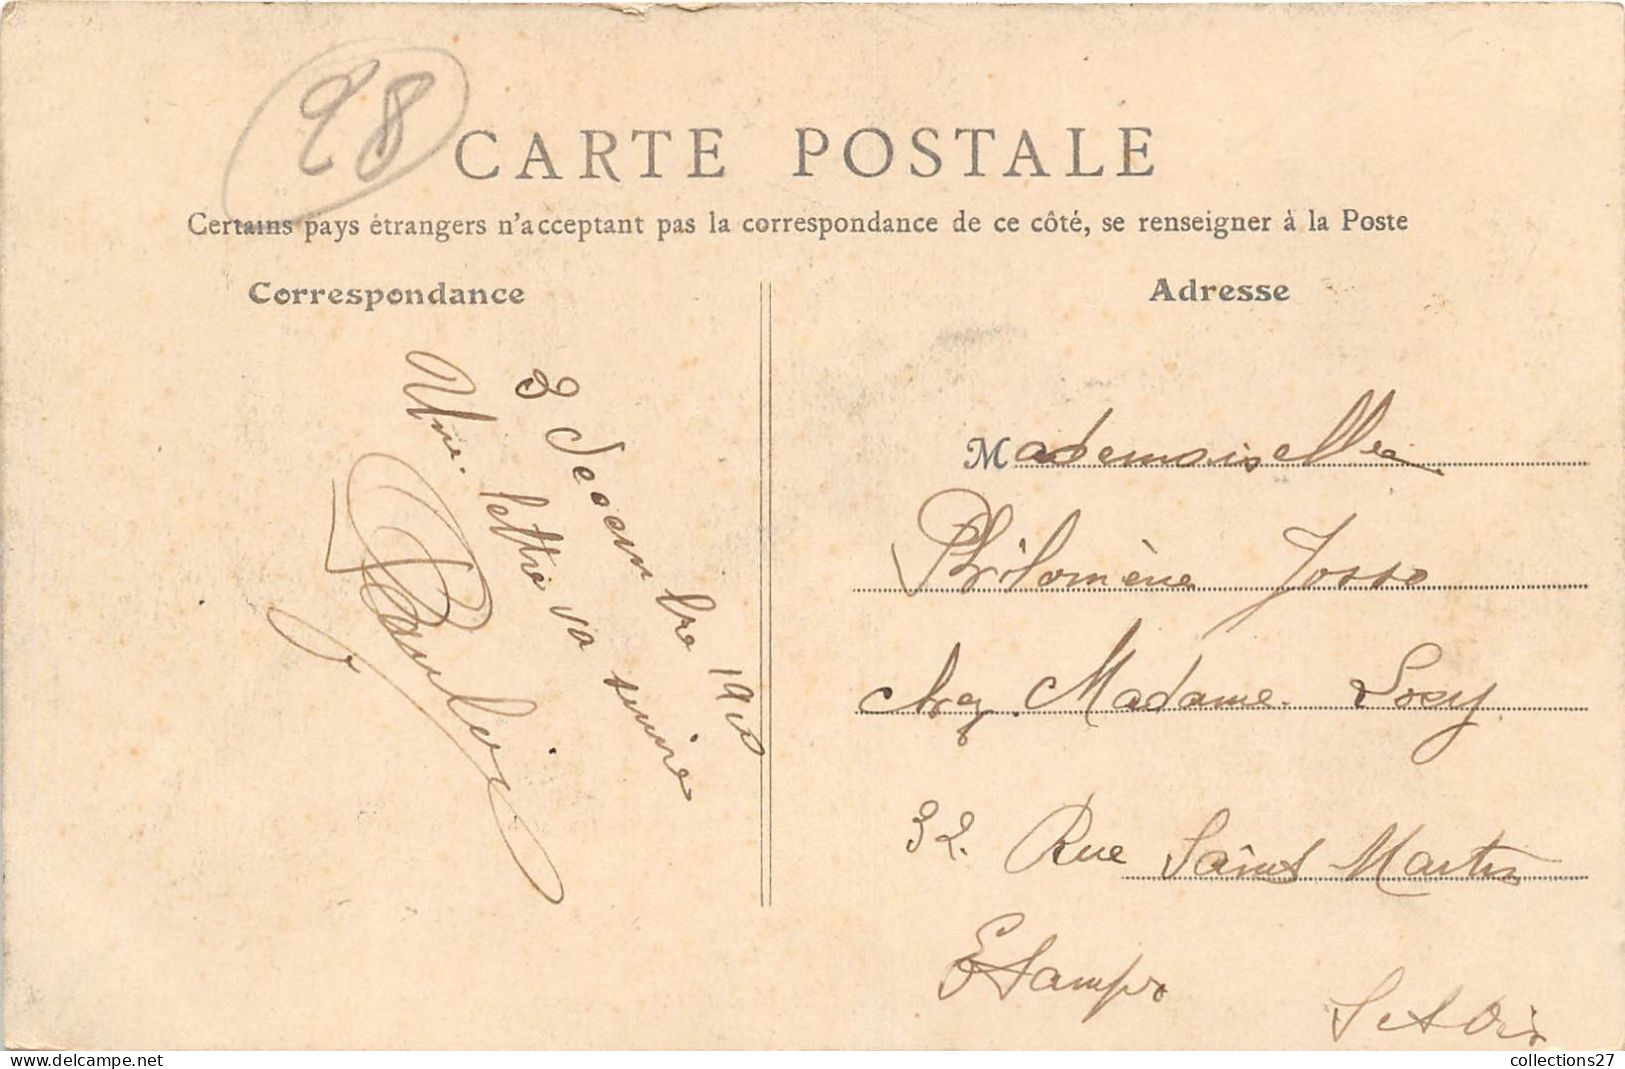 28
CARTE POSTALE
Certains pays étrangers n'acceptant pas la correspondance de ce côté, se renseigner à la Poste
Correspondance
Adresse
8 Decembre 1910
Une lettre va suivre
Mademoiselle
Philomène Josse
chez Madame
32 Rue Saint Martin
Etampes
S et Oise
collections27